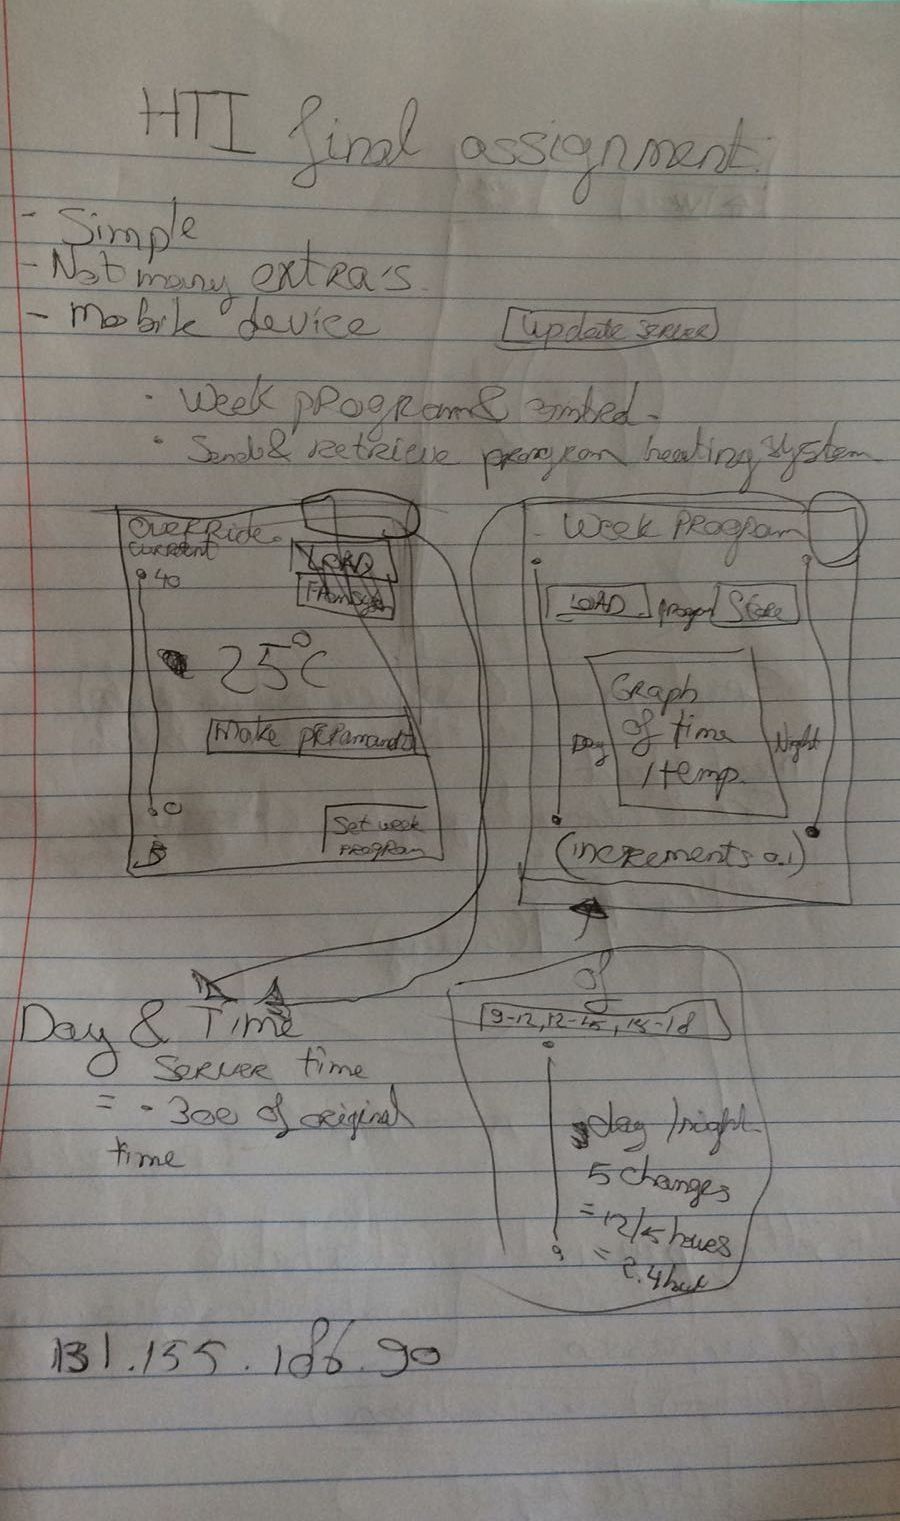 HTI final assignment.
- Simple
- Not many extra's.
- Mobile device
Update server
· Week program &
· Send & retrieve program heating system
Override
current
LOAD
40
25°C
Make permanent
0
5
Set week
program
Week program
LOAD program Store
Graph
of time
/temp.
Day
Night
(increments 0.1)
Day & Time
Server time
= - 300 of original
time
of
9-12, 12-15, 15-18
day/night.
5 changes
= 12/5 hours
= 2.4 hour
131.155.186.90